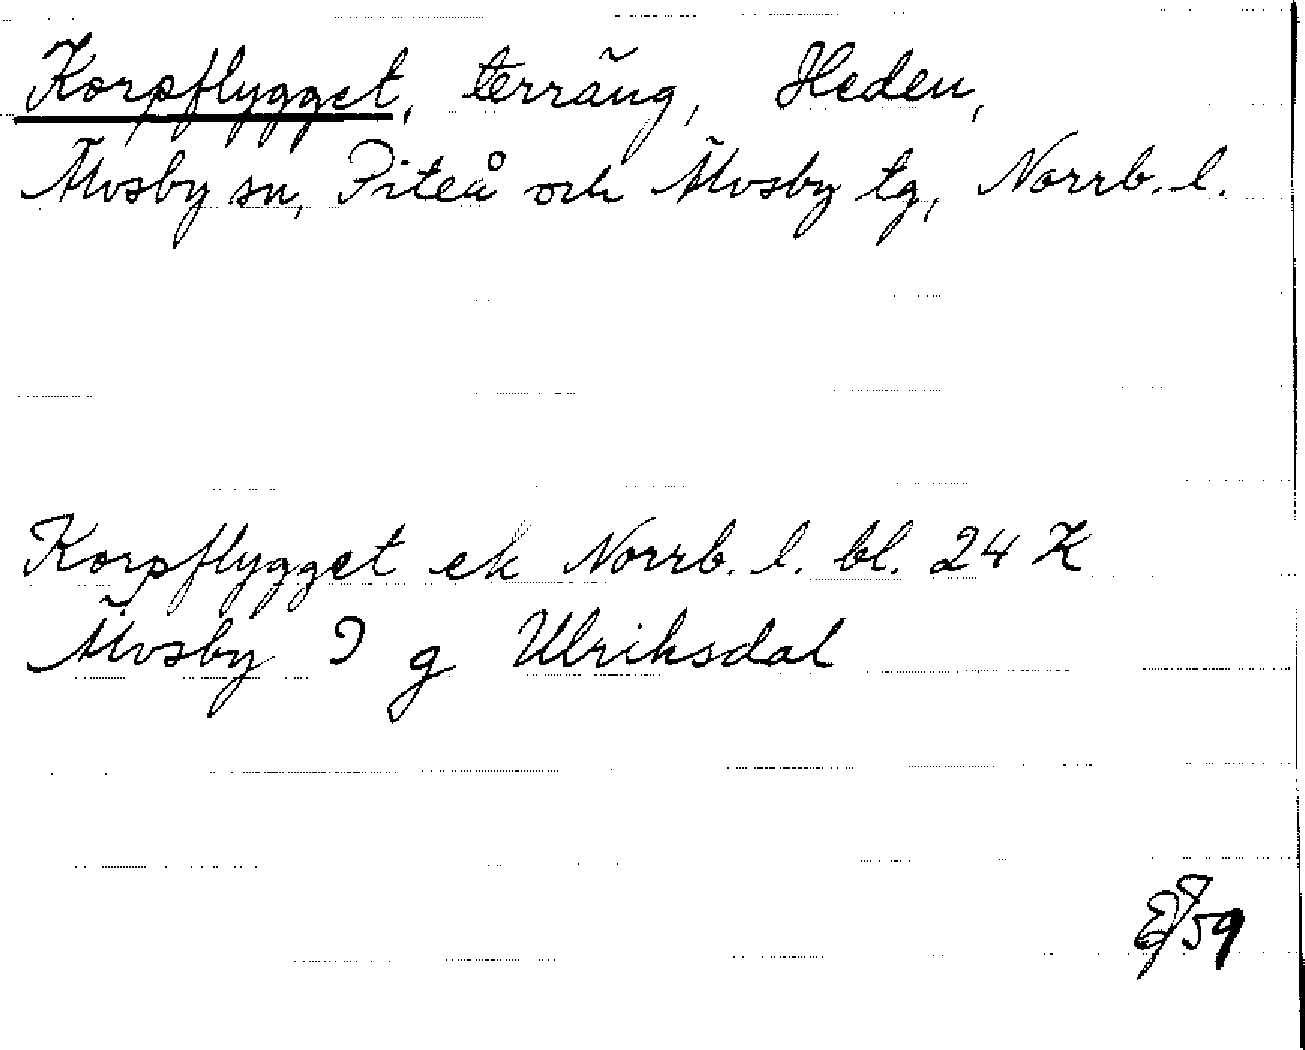 Korpflygget, terräng, Heden,
Älvsby sn, Piteå och Älvsby tg, Norrb. l.
Korpflygget ek Norrb. l. bl. 24 K
Älvsby I g Ulriksdal
59